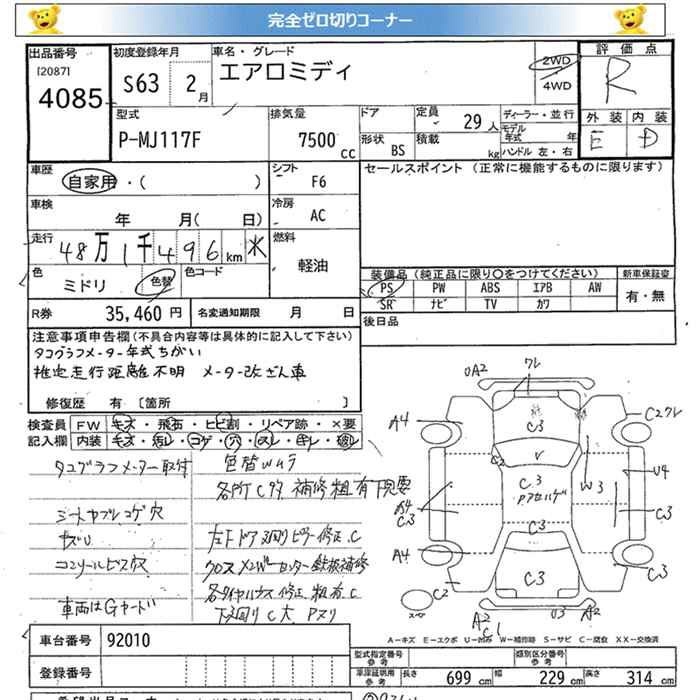 完全ゼロ切りコーナー
出品番号 初度登録年月 車名・グレード 評価点
[2087] S63 2月 エアロミディ 2WD R
4085 4WD
型式 排気量 ドア 定員 29人 ディーラー・並行 外装 内装
P-MJ117F 7500cc 形状 BS 積載 kg モデル年式 年 E D
ハンドル 左・右
車歴 自家用・( ) シフト F6 セールスポイント (正常に機能するものに限ります)
車検 年 月( 日) 冷房 AC
走行 48万1千496km 燃料 軽油
色 ミドリ 色替 色コード 装備品(純正品に限り○をつけてください) 新車保証書
PS PW ABS エアB AW 有・無
R券 35,460円 名変通知期限 月 日 SR ナビ TV カワ
後日品
注意事項申告欄(不具合内容等は具体的に記入して下さい)
タコグラフメーター年式ちがい
推定走行距離不明 メーター改ざん車
修復歴 有 [箇所 ]
検査員 FW キズ・飛石・ヒビ割・リペア跡・×要
記入欄 内装 キズ・汚レ・コゲ・穴・スレ・キレ・破レ
タコグラフメーター取付 色替ムラ
各所C多 補修粗有 下見要
シートヤブレコゲ穴
キズU 左F ドア 廻りピラー修正、C
コンソールビス穴 クロスメンバーセンター鉄板補修
各タイヤハウス修正、粗有、C
車両はGヤード 下廻りC大、Pヌリ
UA2 ワレ
A4 C3 C2ワレ
C2 V
C3 W3 U4
A4 C3 C3
C3
A4 C3 C3
C2
A2 C1 U3 A2
A-キズ E-エクボ U-凹み W-補修跡 S-サビ C-腐食 XX-交換済
車台番号 92010 型式指定番号 参考 類別区分番号 参考
登録番号 車庫証明用 参考 長さ 699cm 幅 229cm 高さ 314cm